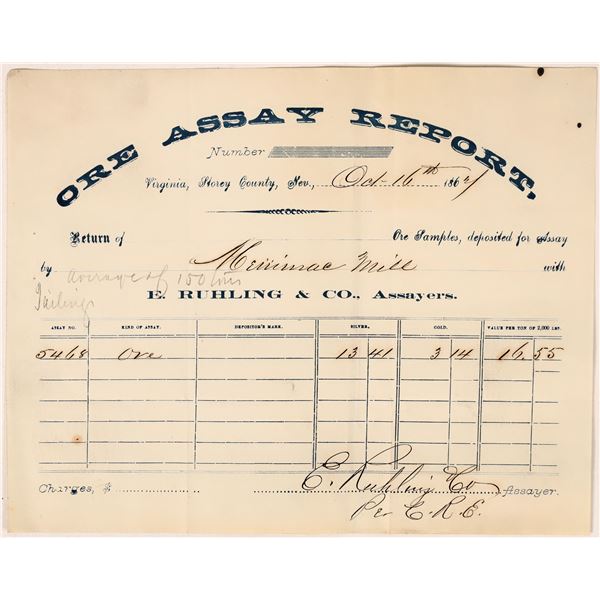 ORE ASSAY REPORT,
Number
Virginia, Storey County, Nev., Oct 16th 1867
Return of Ore Samples, deposited for Assay
by Merrimac Mill with
average of 150 tons
Tailings
E. RUHLING & CO., Assayers.
ASSAY NO. KIND OF ASSAY. DEPOSITOR'S MARK. SILVER. GOLD. VALUE PER TON OF 2,000 LBS.
5468 Ore 13 41 3 14 16.55
Charges, $ E. Ruhling & Co Assayer.
Per C.R.E.